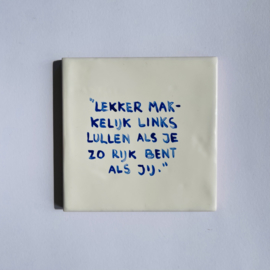 "LEKKER MAK-
KELIJK LINKS
LULLEN ALS JE
ZO RIJK BENT
ALS JIJ."